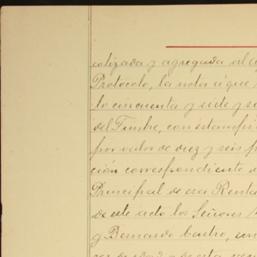 cotizada y agregada al
Protocolo, la nota que
to cincuenta y siete y
del Timbre, con estampi
por valor de diez y seis
ción correspondiente
Principal de esa Renta
de este acto los Señores
y Bernardo Castro,